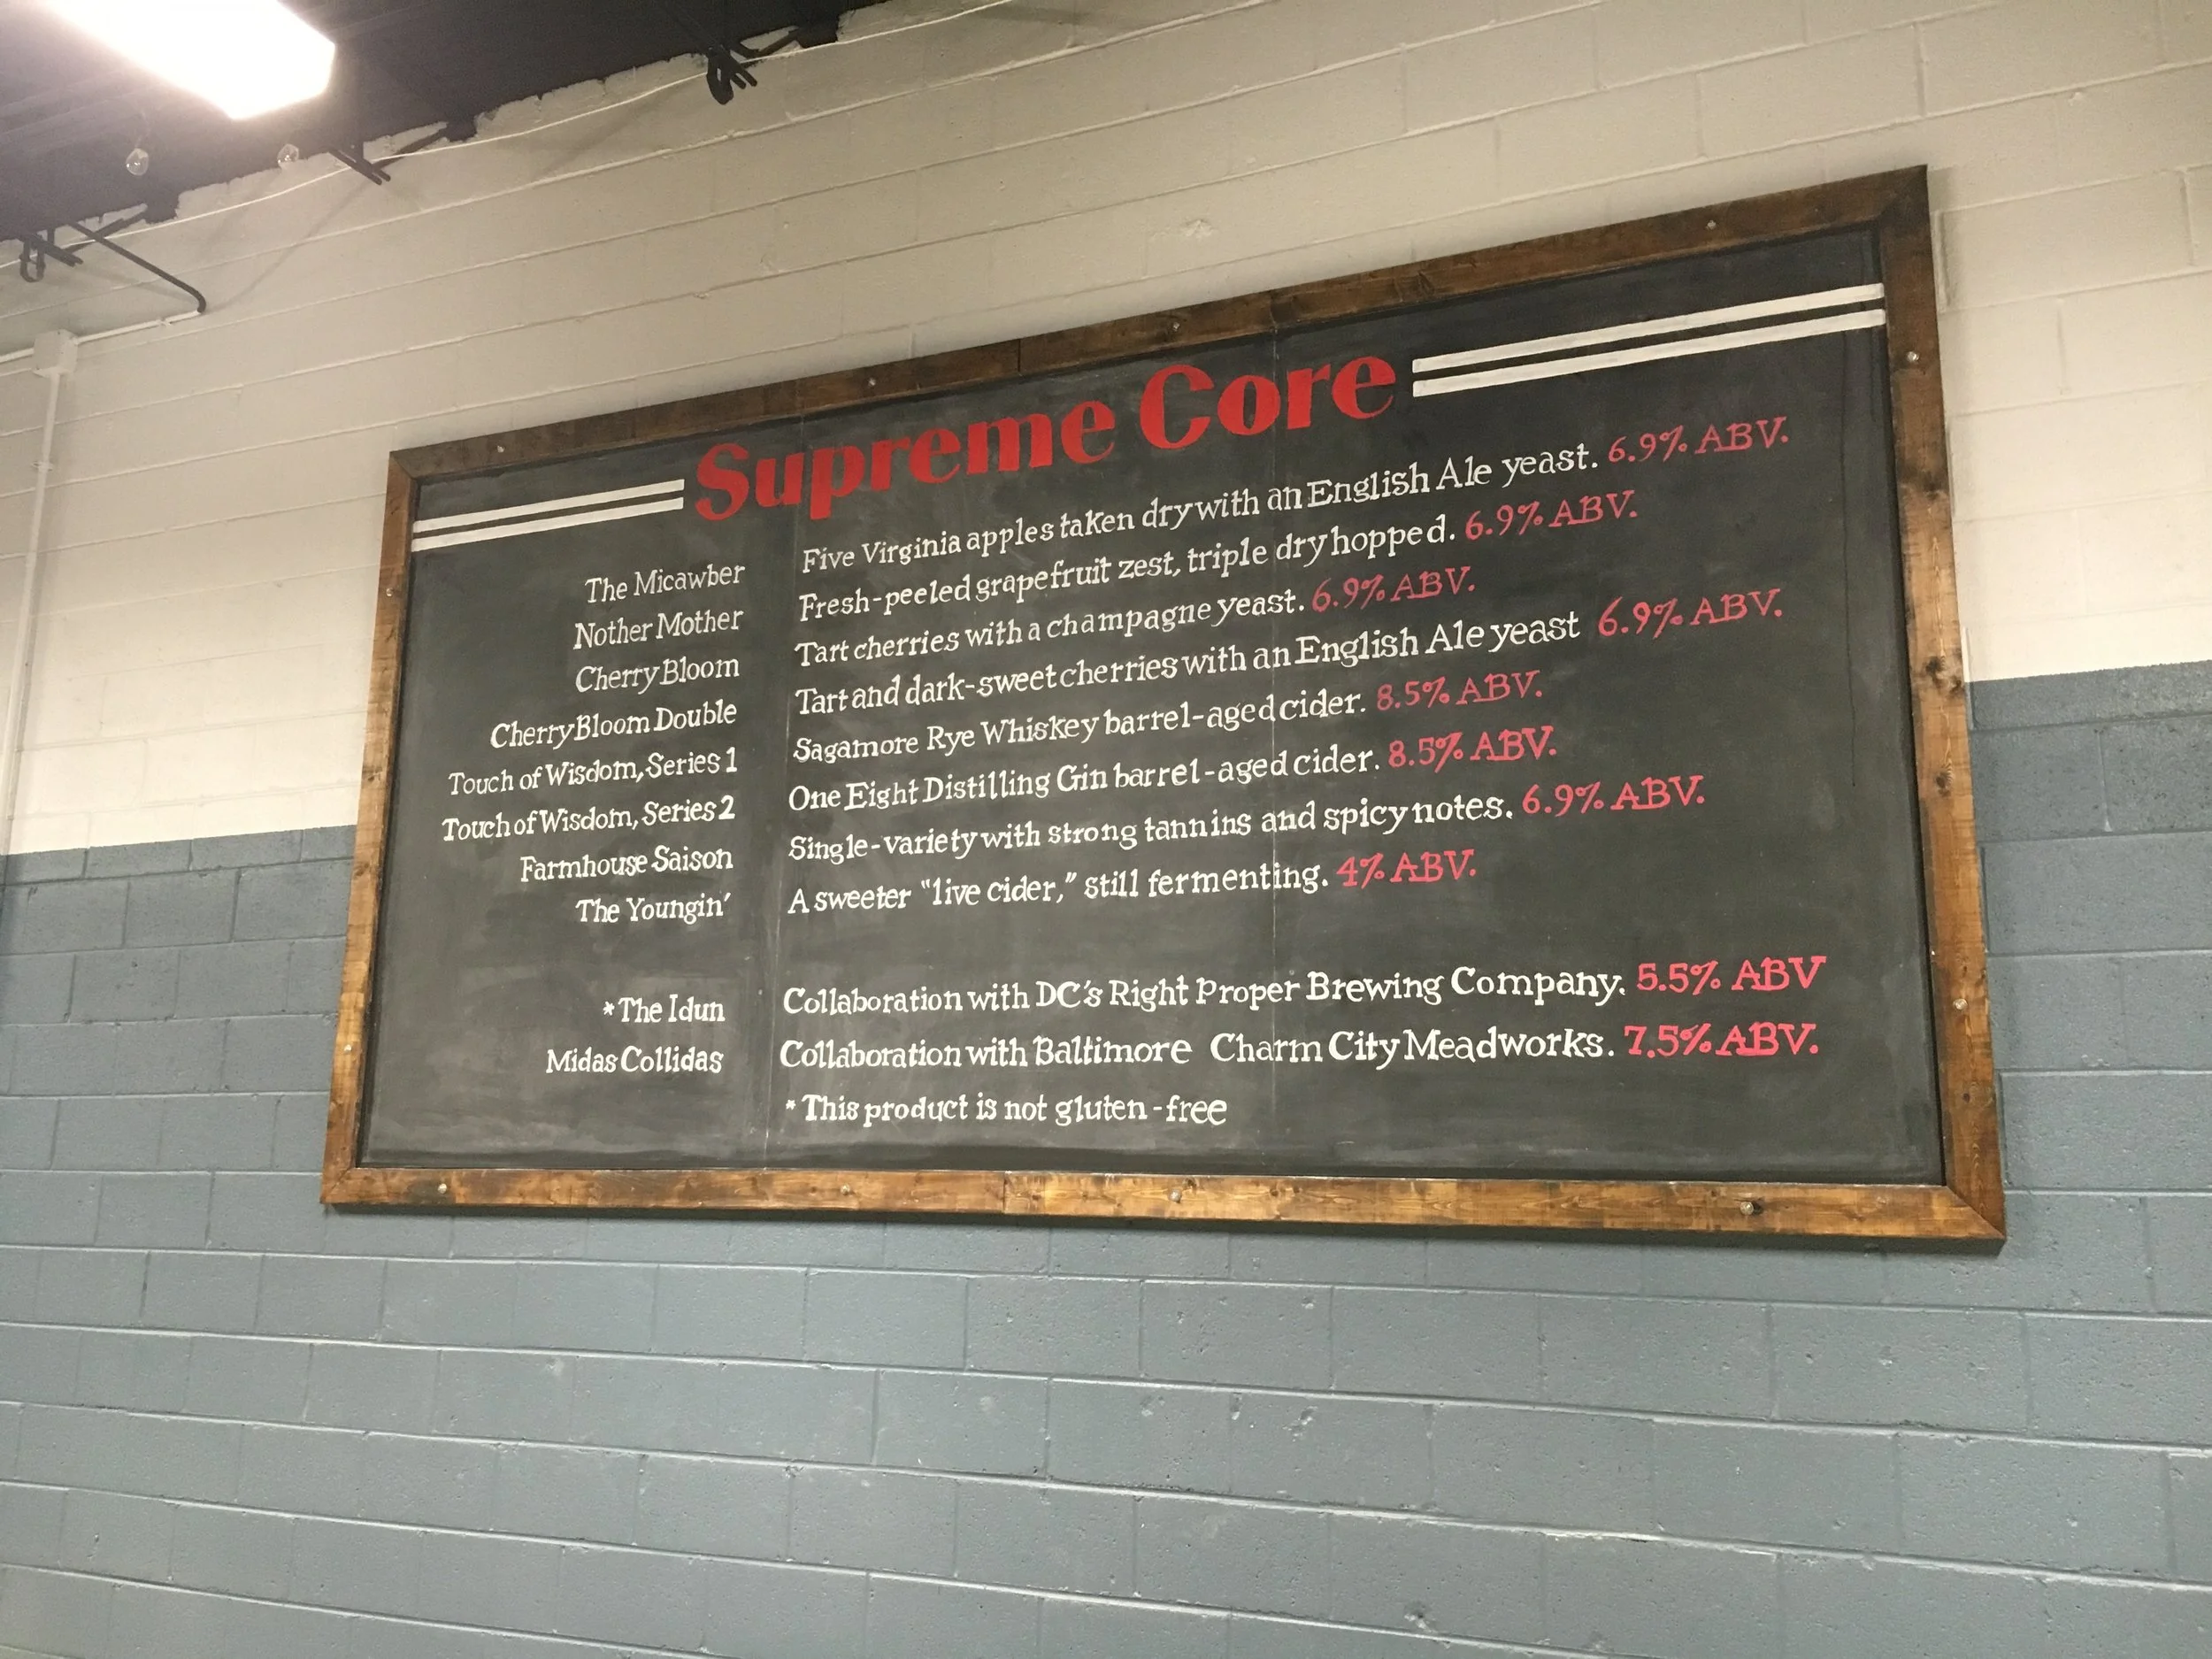 Supreme Core
The Micawber Five Virginia apples taken dry with an English Ale yeast. 6.9% ABV.
Nother Mother Fresh-peeled grapefruit zest, triple dry hopped. 6.9% ABV.
Cherry Bloom Tart cherries with a champagne yeast. 6.9% ABV.
Cherry Bloom Double Tart and dark-sweet cherries with an English Ale yeast 6.9% ABV.
Touch of Wisdom, Series 1 Sagamore Rye Whiskey barrel-aged cider. 8.5% ABV.
Touch of Wisdom, Series 2 One Eight Distilling Gin barrel-aged cider. 8.5% ABV.
Farmhouse Saison Single-variety with strong tannins and spicy notes. 6.9% ABV.
The Youngin' A sweeter "live cider," still fermenting. 4% ABV.
*The Idun Collaboration with DC's Right Proper Brewing Company. 5.5% ABV
Midas Collidas Collaboration with Baltimore Charm City Meadworks. 7.5% ABV.
* This product is not gluten-free